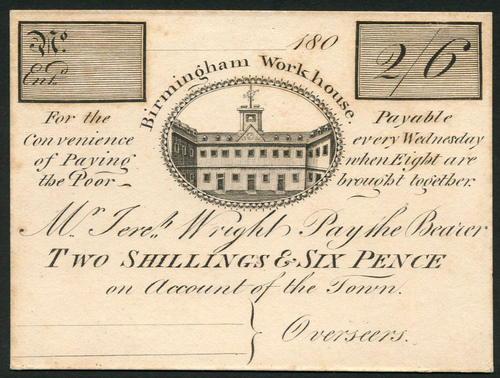 No.
Entd.
180
2/6
Birmingham Workhouse.
For the
Convenience
of Paying
the Poor
Payable
every Wednesday
when Eight are
brought together.
Mr. Jereh. Wright Pay the Bearer
TWO SHILLINGS & SIX PENCE
on Account of the Town.
Overseers.